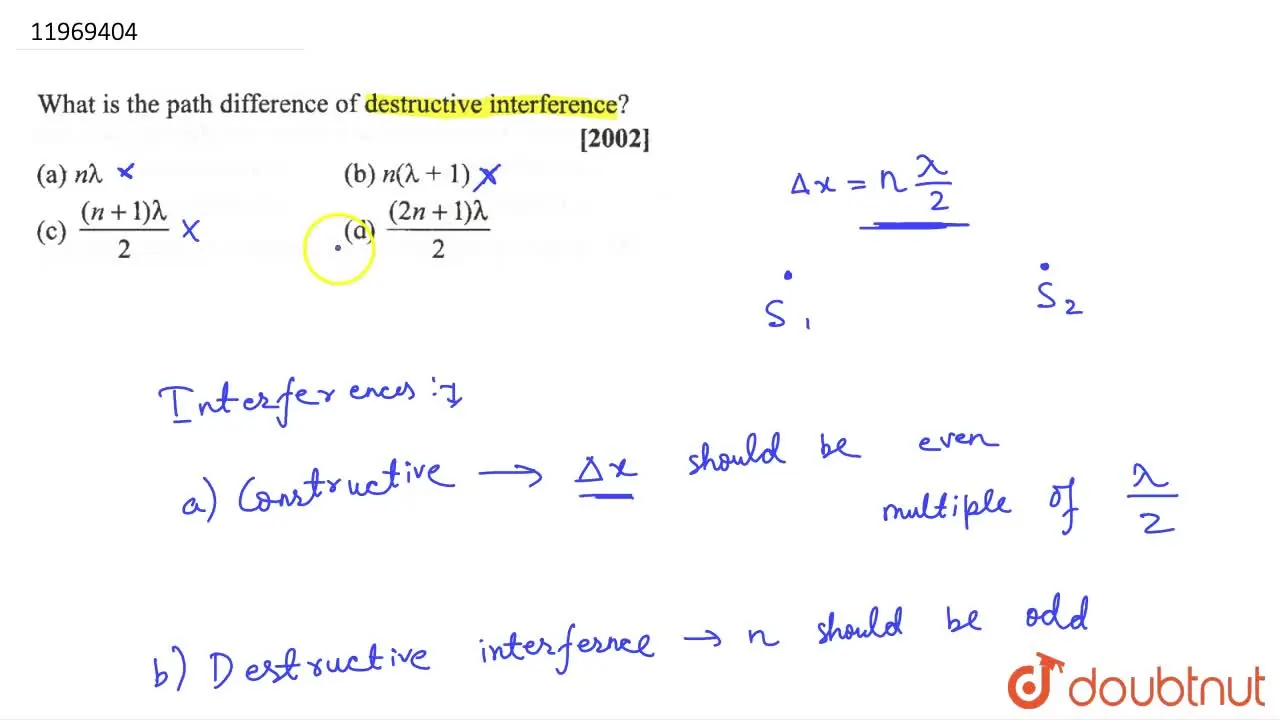 11969404
What is the path difference of destructive interference?
[2002]
(a) nλ × (b) n(λ + 1) ×
(c) (n + 1)λ / 2 × (d) (2n + 1)λ / 2
Δx = n λ/2
S1 S2
Interferences :-
a) Constructive → Δx should be even
multiple of λ/2
b) Destructive interfernce → n should be odd
doubtnut